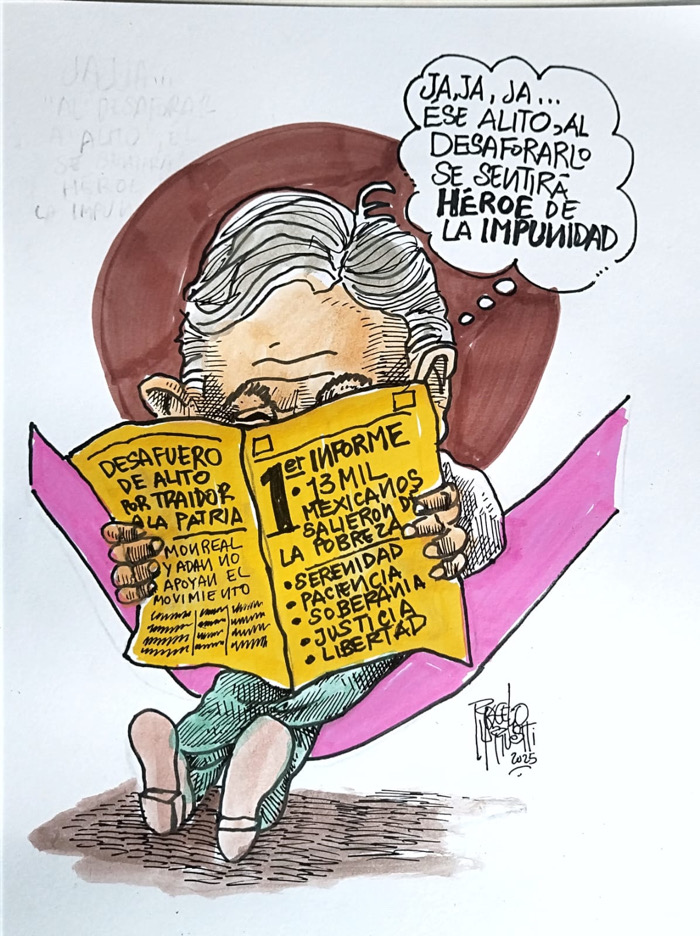 JA, JA, JA...
ESE ALITO, AL
DESAFORARLO
SE SENTIRÁ
HÉROE DE
LA IMPUNIDAD
DESAFUERO
DE ALITO
POR TRAIDOR
A LA PATRIA
MONREAL
Y ADAN NO
APOYAN EL
MOVIMIENTO
1er INFORME
• 13 MIL
MEXICANOS
SALIERON DE
LA POBREZA
• SERENIDAD
• PACIENCIA
• SOBERANIA
• JUSTICIA
• LIBERTAD
2025
JA JA...
"AL DESAFORAR
A ALITO, EL
SE SENTIRA
HÉROE
LA IMPUN